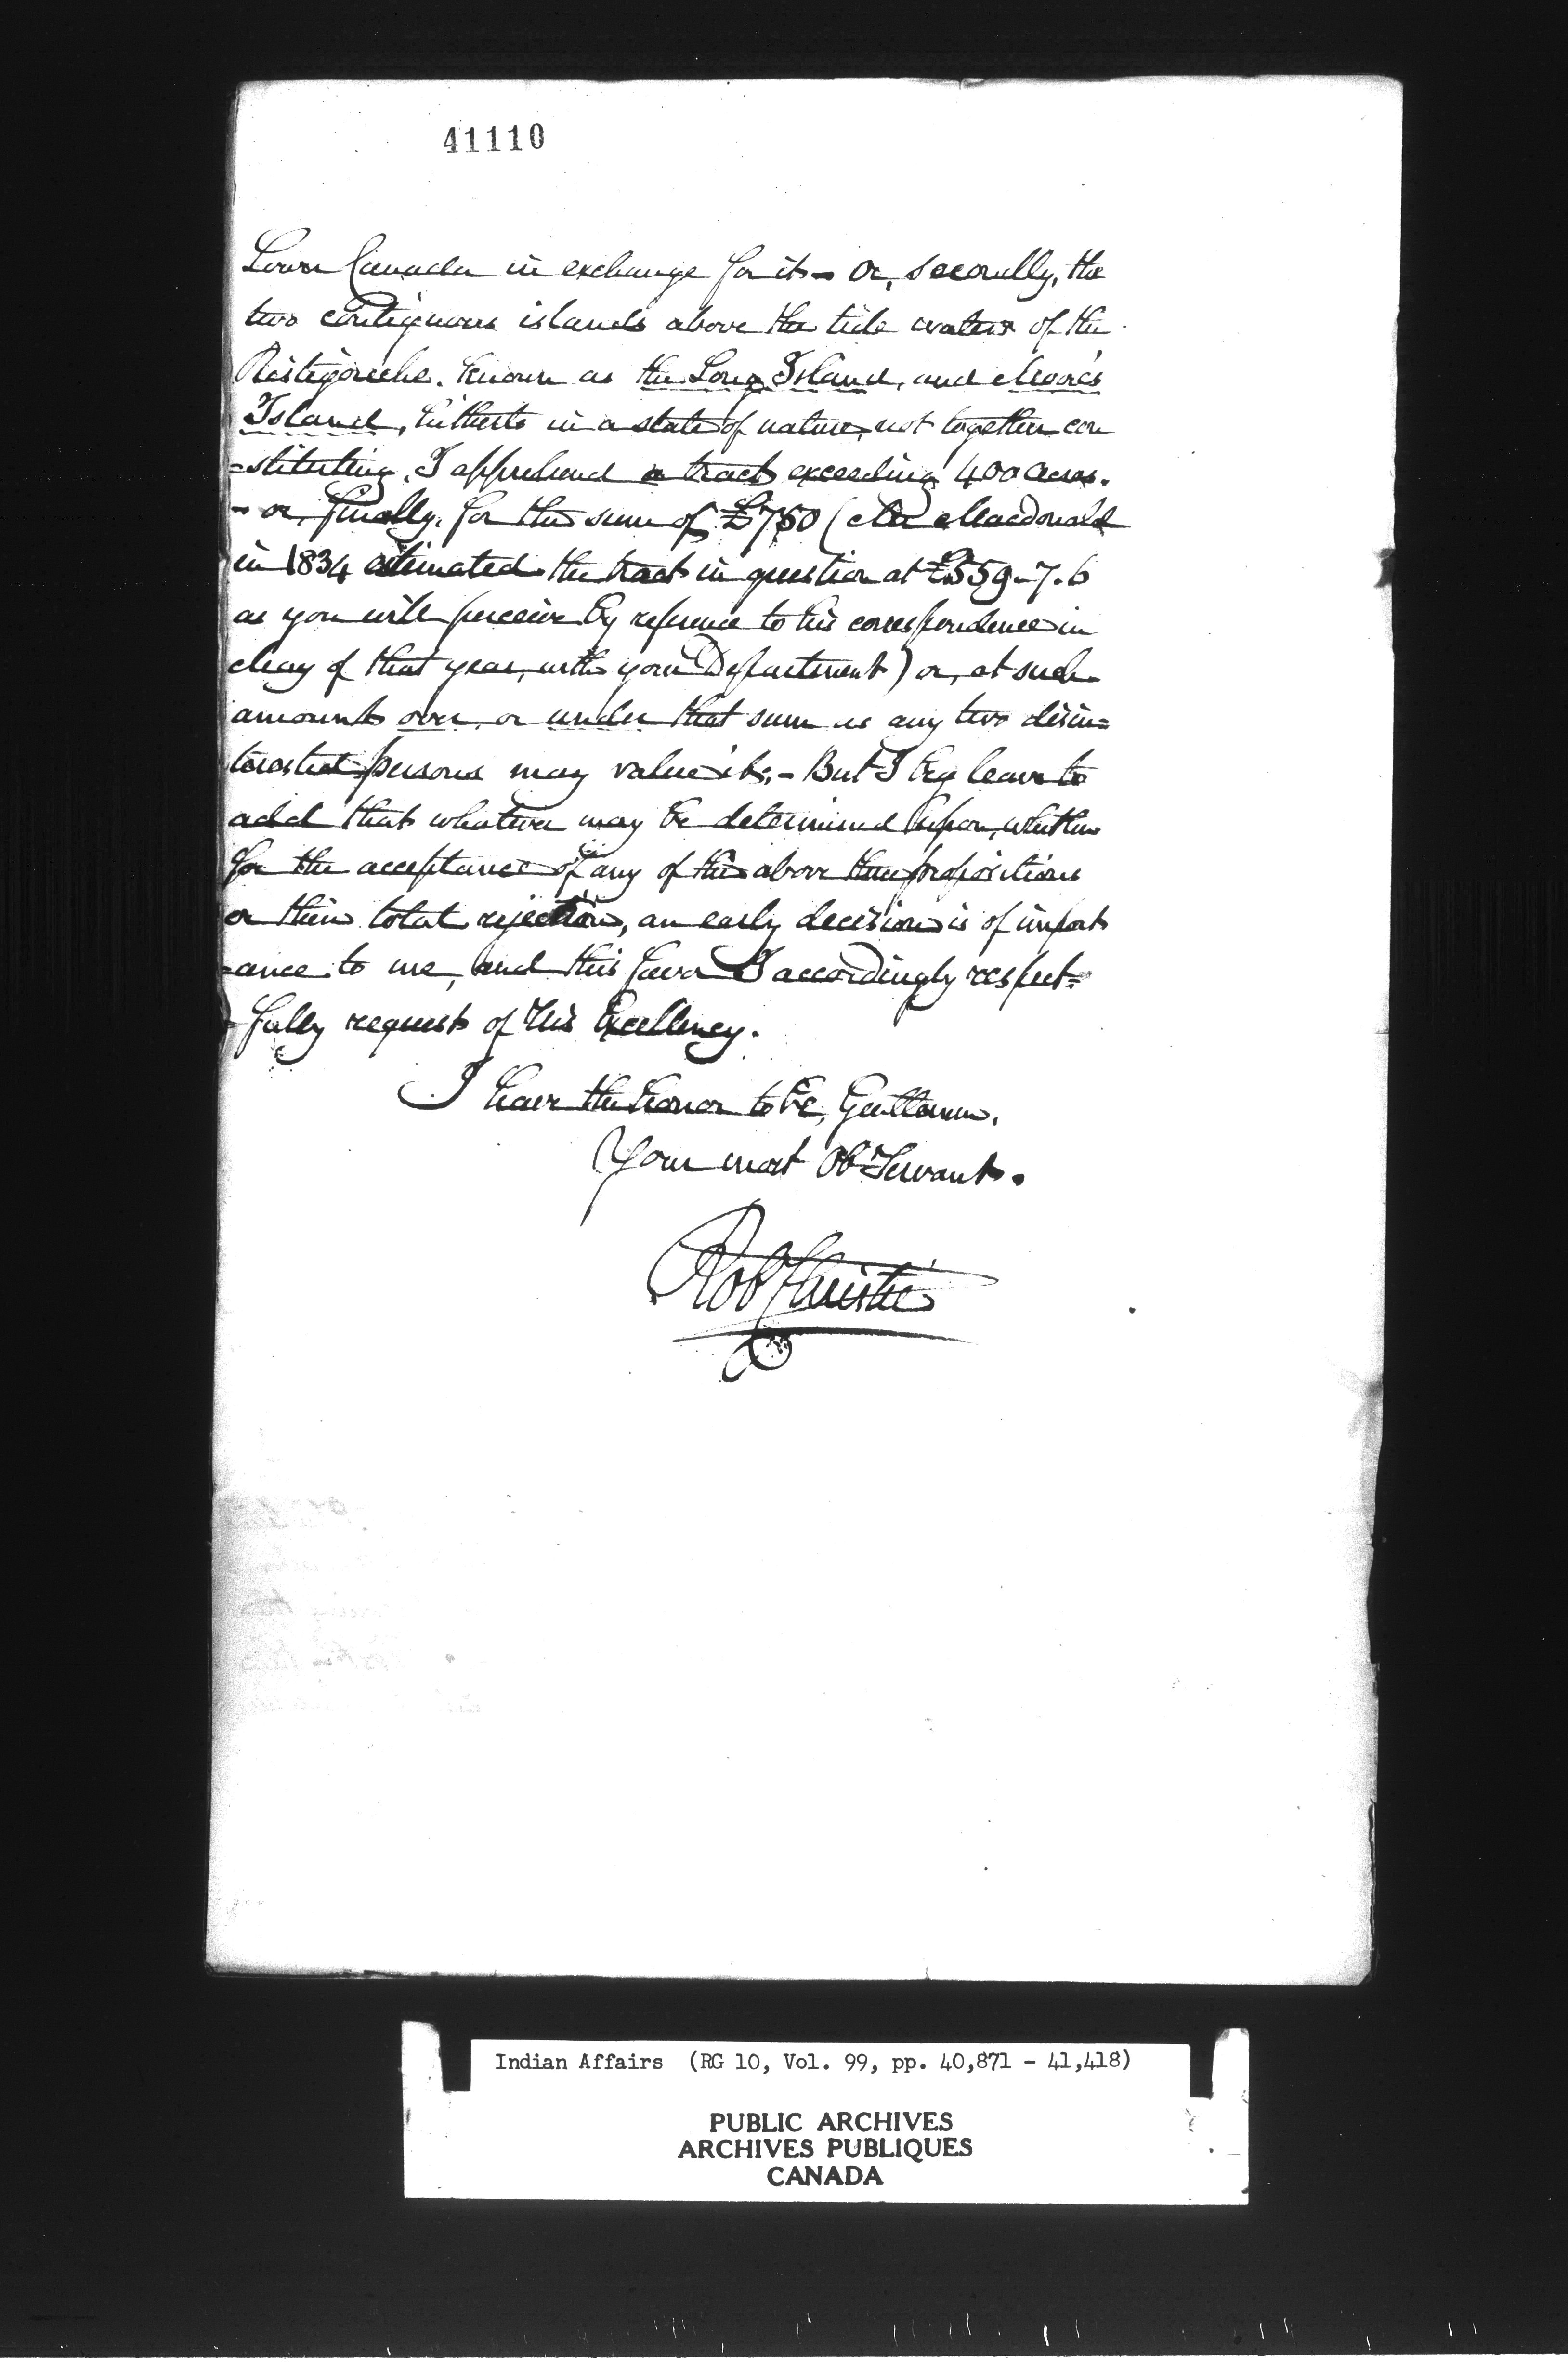 41110
Lower Canada in exchange for it - Or, secondly, the
two contiguous islands above the tide waters of the
Ristigouche. Known as the Long Island, and Moore's
Island, hitherto in a state of nature, not together con
=stituting, I apprehend a tract exceeding 400 acres.
- or, finally, for the sum of £750 (Mr Macdonald
in 1834 estimated the tract in question at £559-7.6
as you will perceive by reference to his correspondence in
May of that year, with your Department) or, at such
amount over, or under that sum as any two disin=
terested persons may value it; - But I beg leave to
add that whatever may be determined upon, whether
for the acceptance of any of the above three propositions
or their total rejection, an early decision is of import
=ance to me, and this favor I accordingly respect=
=fully request of His Excellency.
I have the honor to be, Gentlemen,
Your most Obt Servant.
Robt Christie
Indian Affairs (RG 10, Vol. 99, pp. 40,871 - 41,418)
PUBLIC ARCHIVES
ARCHIVES PUBLIQUES
CANADA